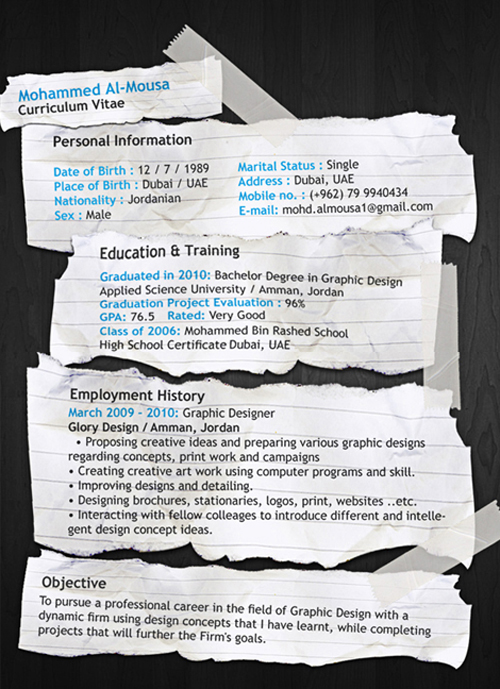 Mohammed Al-Mousa
Curriculum Vitae
Personal Information
Date of Birth : 12 / 7 / 1989
Place of Birth : Dubai / UAE
Nationality : Jordanian
Sex : Male
Marital Status : Single
Address : Dubai, UAE
Mobile no. : (+962) 79 9940434
E-mail: mohd.almousa1@gmail.com
Education & Training
Graduated in 2010: Bachelor Degree in Graphic Design
Applied Science University / Amman, Jordan
Graduation Project Evaluation : 96%
GPA: 76.5 Rated: Very Good
Class of 2006: Mohammed Bin Rashed School
High School Certificate Dubai, UAE
Employment History
March 2009 - 2010: Graphic Designer
Glory Design / Amman, Jordan
• Proposing creative ideas and preparing various graphic designs
regarding concepts, print work and campaigns
• Creating creative art work using computer programs and skill.
• Improving designs and detailing.
• Designing brochures, stationaries, logos, print, websites ..etc.
• Interacting with fellow colleages to introduce different and intelle-
gent design concept ideas.
Objective
To pursue a professional career in the field of Graphic Design with a
dynamic firm using design concepts that I have learnt, while completing
projects that will further the Firm's goals.